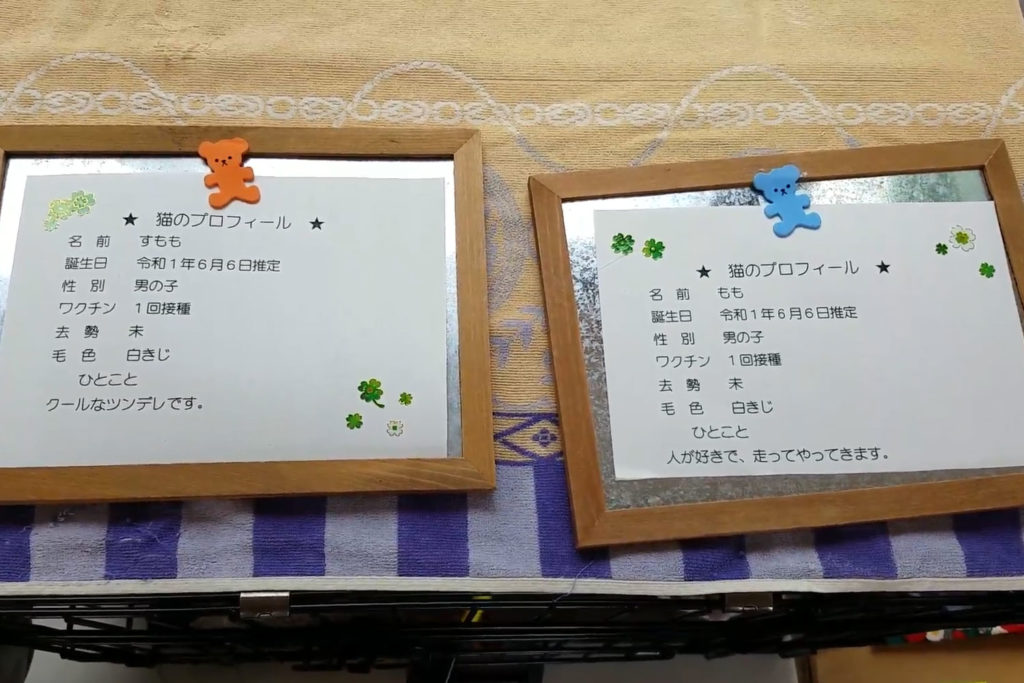 ★ 猫のプロフィール ★
名 前 すもも
誕生日 令和1年6月6日推定
性 別 男の子
ワクチン 1回接種
去 勢 未
毛 色 白きじ
ひとこと
クールなツンデレです。
★ 猫のプロフィール ★
名 前 もも
誕生日 令和1年6月6日推定
性 別 男の子
ワクチン 1回接種
去 勢 未
毛 色 白きじ
ひとこと
人が好きで、走ってやってきます。